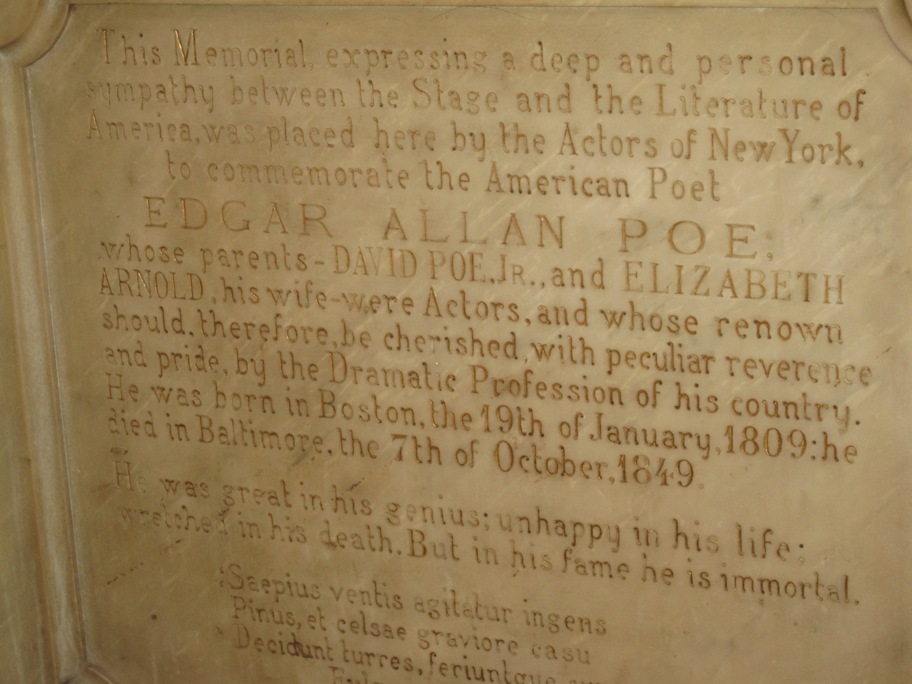 This Memorial, expressing a deep and personal
sympathy between the Stage and the Literature of
America, was placed here by the Actors of New York,
to commemorate the American Poet
EDGAR ALLAN POE;
whose parents-DAVID POE, JR., and ELIZABETH
ARNOLD, his wife-were Actors, and whose renown
should, therefore, be cherished, with peculiar reverence
and pride, by the Dramatic Profession of his country.
He was born in Boston, the 19th of January, 1809: he
died in Baltimore, the 7th of October, 1849.
He was great in his genius; unhappy in his life;
wretched in his death. But in his fame he is immortal.
"Saepius ventis agitatur ingens
Pinus, et celsae graviore casu
Decidunt turres, feriuntque